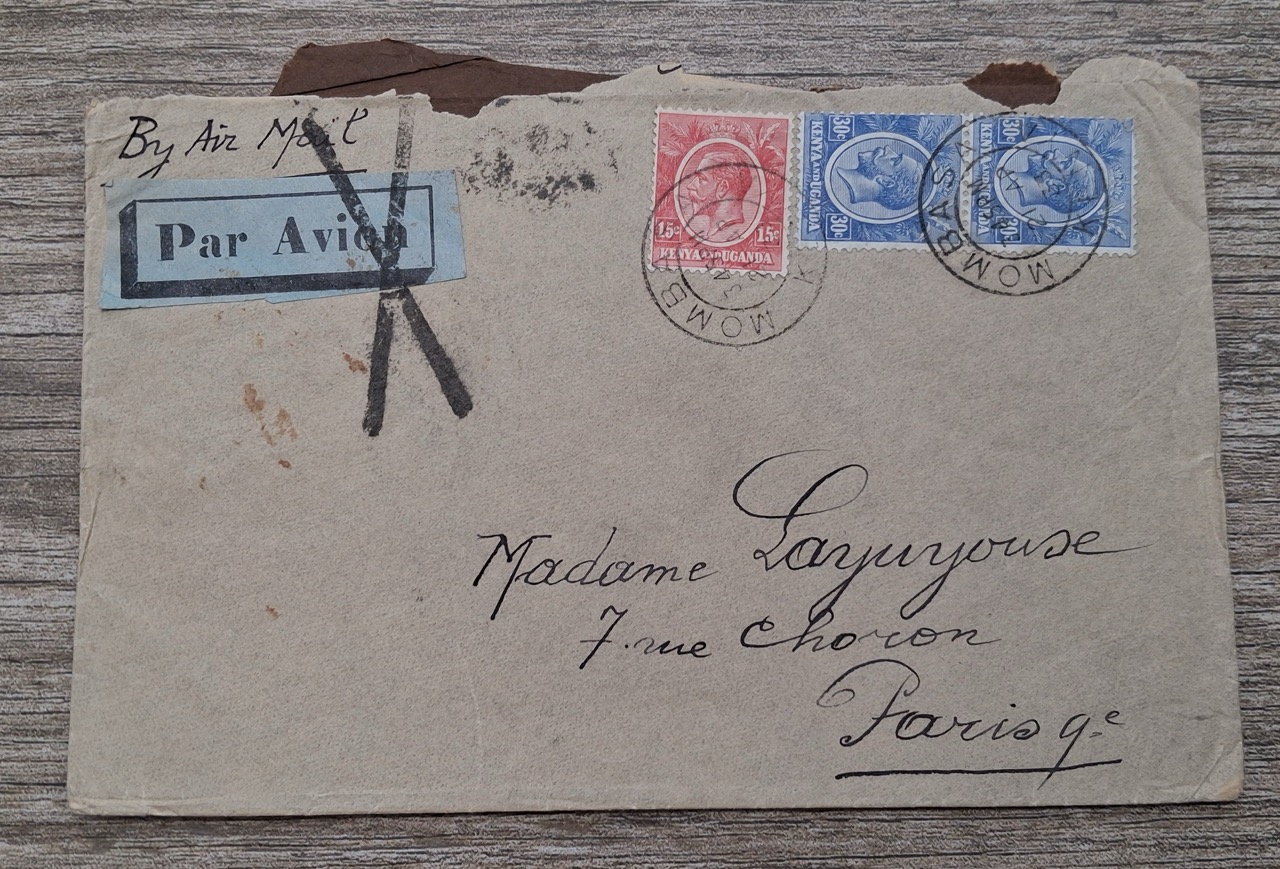 By Air Mail
Par Avion
15c 15c
KENYA AND UGANDA
30c 30c
KENYA AND UGANDA
30c 30c
KENYA AND UGANDA
MOMBA
MOMBASA
21 AP
33
Madame Layuyouse
7. rue Choron
Paris 9.e